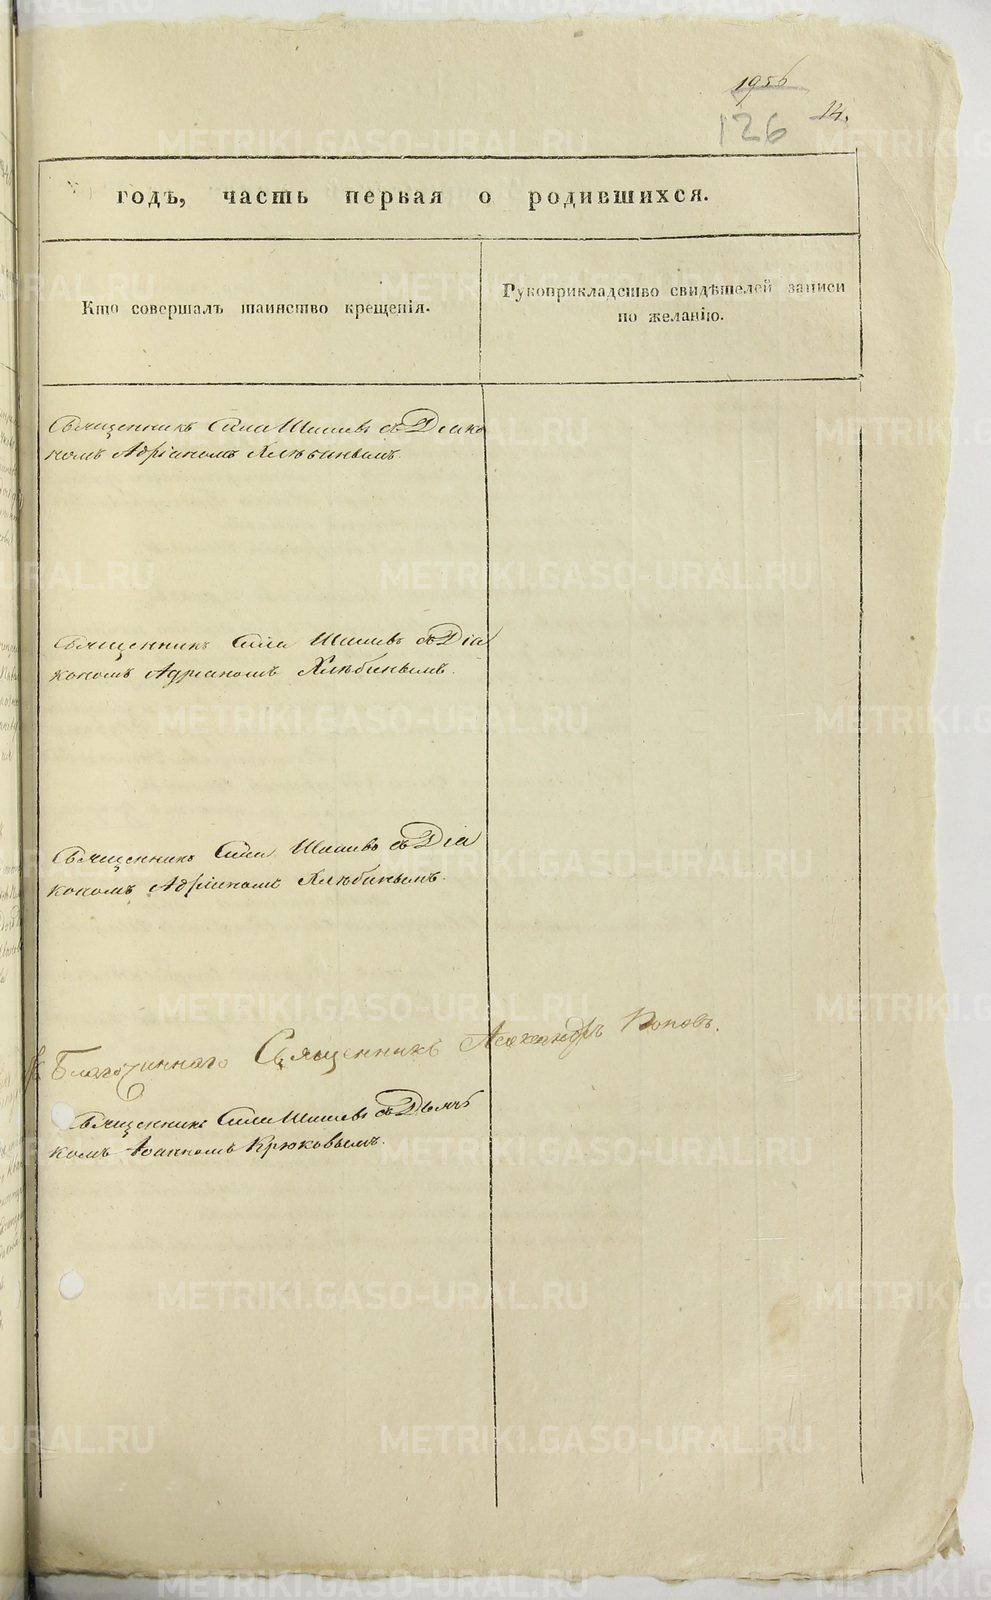 1956
126 14.
годъ, часть первая о родившихся.
Кто совершалъ таинство крещенія.
Рукоприкладство свидѣтелей записи
по желанію.
Священникъ Сила Шишевъ съ Діако
номъ Адріаномъ Хлѣбинымъ.
Священникъ Сила Шишевъ съ Діа
кономъ Адріаномъ Хлѣбинымъ.
Священникъ Сила Шишевъ съ Діа
кономъ Адріаномъ Хлѣбинымъ.
Благочиннаго Священникъ Александръ Поповъ.
Священникъ Сила Шишевъ съ Дьяч
комъ Іоанномъ Крюковымъ.
METRIKI.GASO-URAL.RU